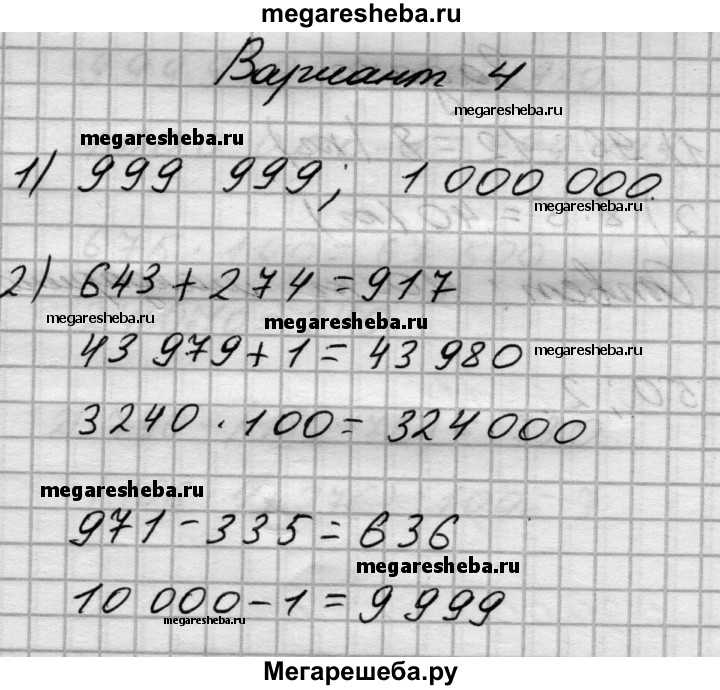 megaresheba.ru
Вариант 4
megaresheba.ru
megaresheba.ru
1) 999 999; 1 000 000.
megaresheba.ru
2) 643 + 274 = 917
megaresheba.ru
megaresheba.ru
43 979 + 1 = 43 980
megaresheba.ru
3240 · 100 = 324 000
megaresheba.ru
971 - 335 = 636
megaresheba.ru
10 000 - 1 = 9 999
megaresheba.ru
Мегарешеба.ру